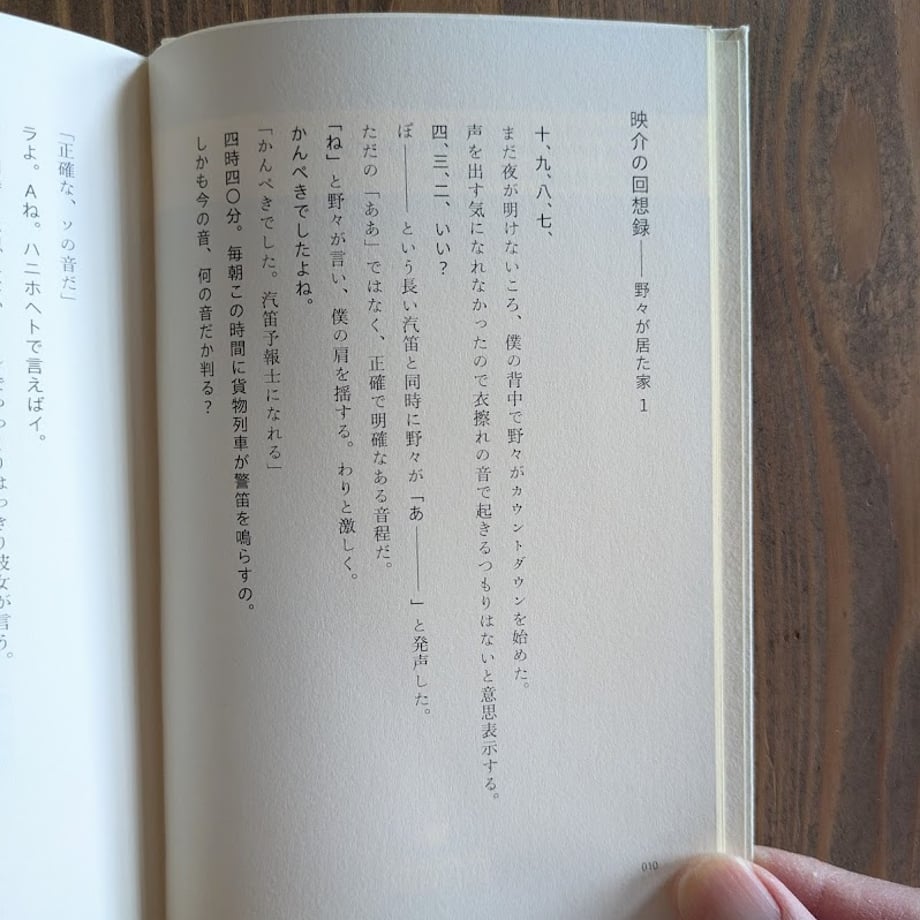 映介の回想録――野々が居た家 1
十、九、八、七、
まだ夜が明けないころ、僕の背中で野々がカウントダウンを始めた。
声を出す気になれなかったので衣擦れの音で起きるつもりはないと意思表示する。
四、三、二、いい?
ぽ――――という長い汽笛と同時に野々が「あ――――」と発声した。
ただの「ああ」ではなく、正確で明確なある音程だ。
「ね」と野々が言い、僕の肩を揺する。わりと激しく。
かんぺきでしたよね。
「かんぺきでした。汽笛予報士になれる」
四時四〇分。毎朝この時間に貨物列車が警笛を鳴らすの。
しかも今の音、何の音だか判る?
010
「正確な、ソの音だ」
ラよ。Aね。ハニホヘトで言えばイ。
はっきり彼女が言う。